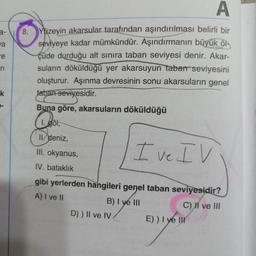 A
8. Yüzeyin akarsular tarafından aşındırılması belirli bir
seviyeye kadar mümkündür. Aşındırmanın büyük öl-
çüde durduğu alt sınıra taban seviyesi denir. Akar-
suların döküldüğü yer akarsuyun taban seviyesini
oluşturur. Aşınma devresinin sonu akarsuların genel
taban seviyesidir.
Buna göre, akarsuların döküldüğü
I. göl,
II. deniz,
III. okyanus,
IV. bataklık
I ve IV
gibi yerlerden hangileri genel taban seviyesidir?
A) I ve II
B) I ve III
C) II ve III
D) ) II ve IV
E) ) I ve III